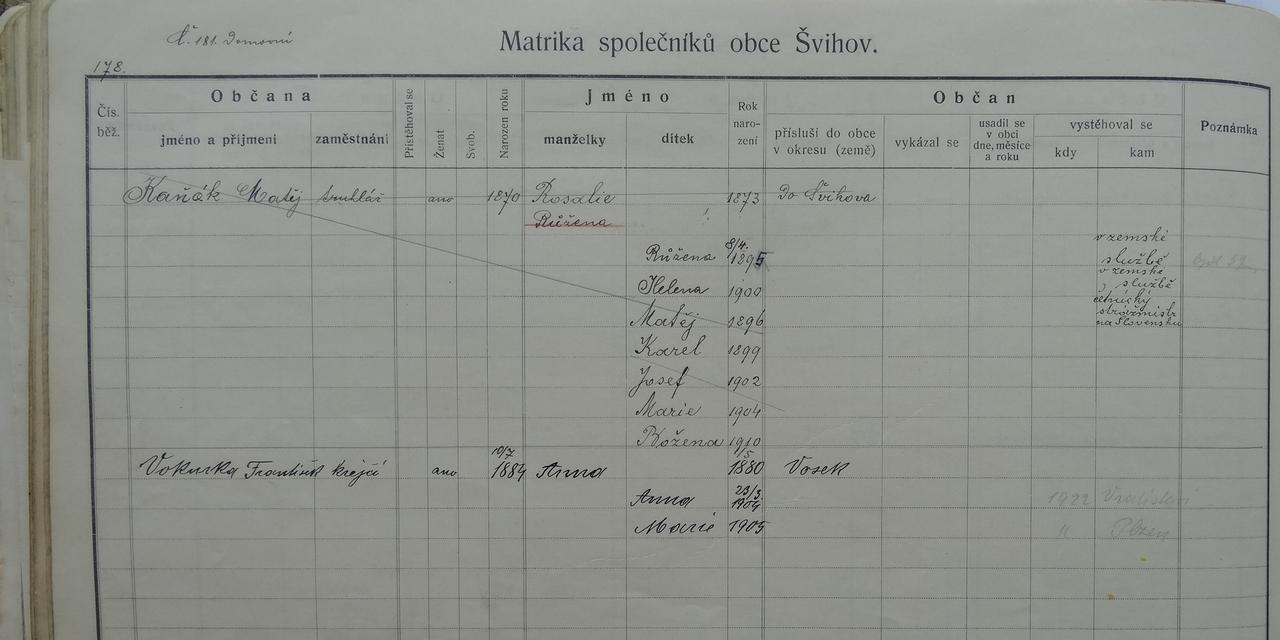 Č. 181. Domovní
Matrika společníků obce Švihov.
178.
Čís. běž.
Občana
jméno a příjmení
zaměstnání
Přistěhoval se
Ženat
Svob.
Narozen roku
Jméno
manželky
dítek
Rok naro- zení
Občan
přísluší do obce v okresu (země)
vykázal se
usadil se v obci dne, měsíce a roku
vystěhoval se
kdy
kam
Poznámka
Kaňák Matěj truhlář ano 1870 Rosalie 1873 Do Švihova
Růžena
v zemské
Růžena 8/4. 1895 službě
v zemské
Helena 1900 službě
četnický
Matěj 1896 strážmistr
na Slovensku
Karel 1899
Josef 1902
Marie 1904
Božena 1910
Vokurka František krejčí ano 10/7 1884 Anna 1/5 1880 Vosek
Anna 23/3 1904 1922
Marie 1905 " Plzen